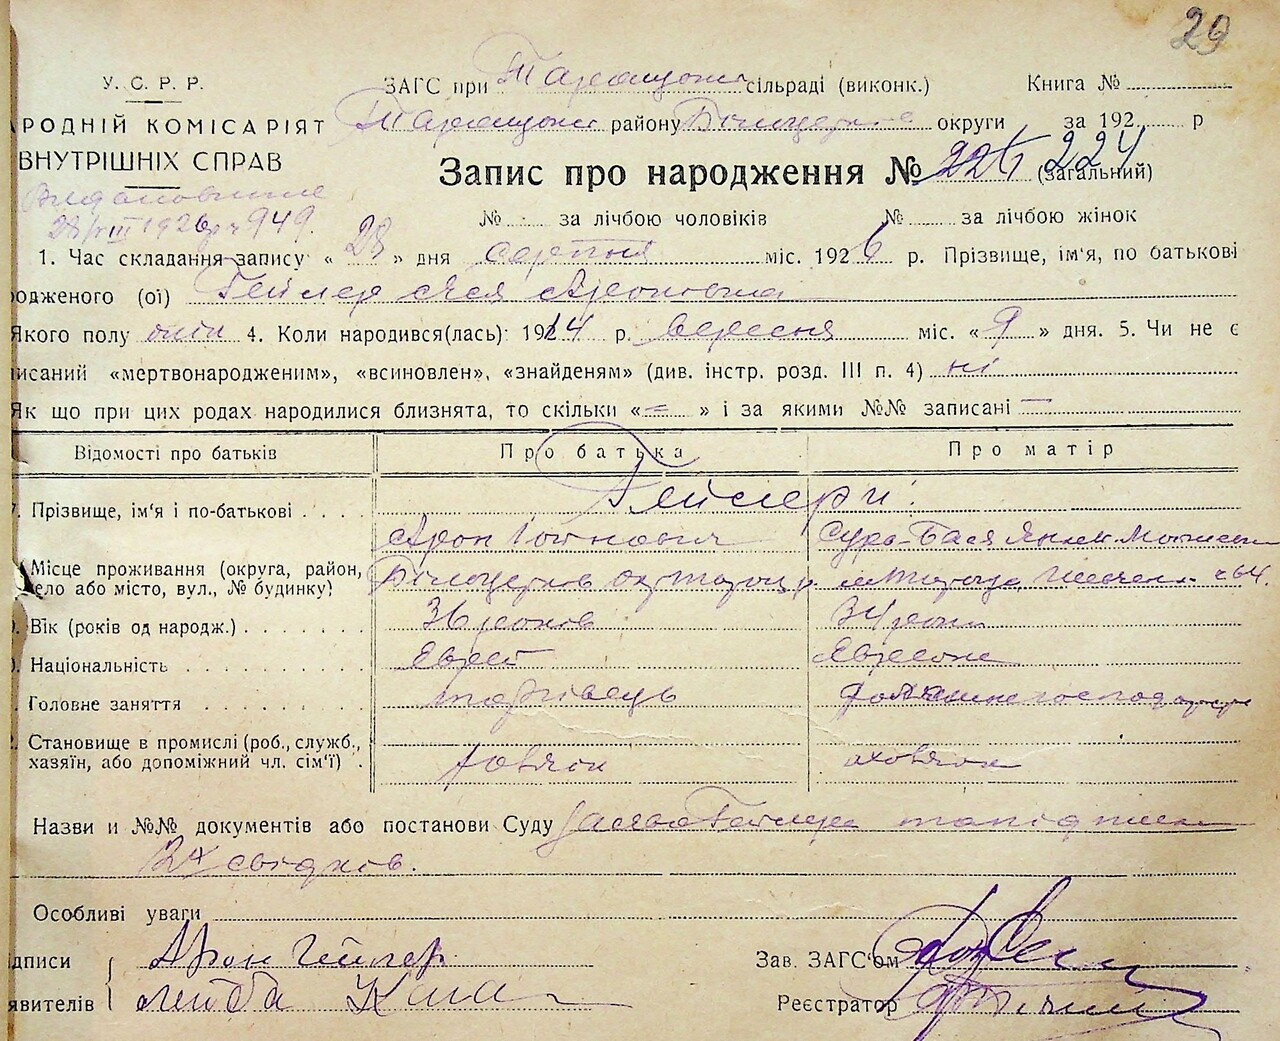 29
У. С. Р. Р.
ЗАГС при Таращан. сільраді (виконк.) Книга №
РОДНІЙ КОМІСАРІЯТ
Таращан. району Білоцерків. округи за 192 р
ВНУТРІШНІХ СПРАВ
Запис про народження № 224 224 (загальний)
28/VIII 1926 р ч 949.
№ за лічбою чоловіків № за лічбою жінок
1. Час складання запису « 28 » дня серпня міс. 1926 р. Прізвище, ім'я, по батькові
одженого (ої) Гейлер Ася Ароновна
Якого полу жін 4. Коли народився(лась): 1914 р. вересня міс. « 9 » дня. 5. Чи не є
исаний «мертвонародженим», «всиновлен», «знайденям» (див. інстр. розд. III п. 4) ні
Як що при цих родах народилися близнята, то скільки « = » і за якими №№ записані —
Відомості про батьків Про батька Про матір
Гейлери:
Прізвище, ім'я і по-батькові Арон Сура-Бася
Місце проживання (округа, район,
село або місто, вул., № будинку) Білоцерков окр Таращ р. м Тараща ч 64.
Вік (років од народж.) 36 роков 34 роки
Національність Еврей Евреєка
Головне заняття торгівець домашнє господарство
Становище в промислі (роб., служб.,
хазяїн, або допоміжний чл. сім'ї)
Назви и №№ документів або постанови Суду заява Гейлера та підписи
2х свідков.
Особливі уваги
дписи Арон Гейлер Зав. ЗАГС'ом
явителів Лейба Реєстратор